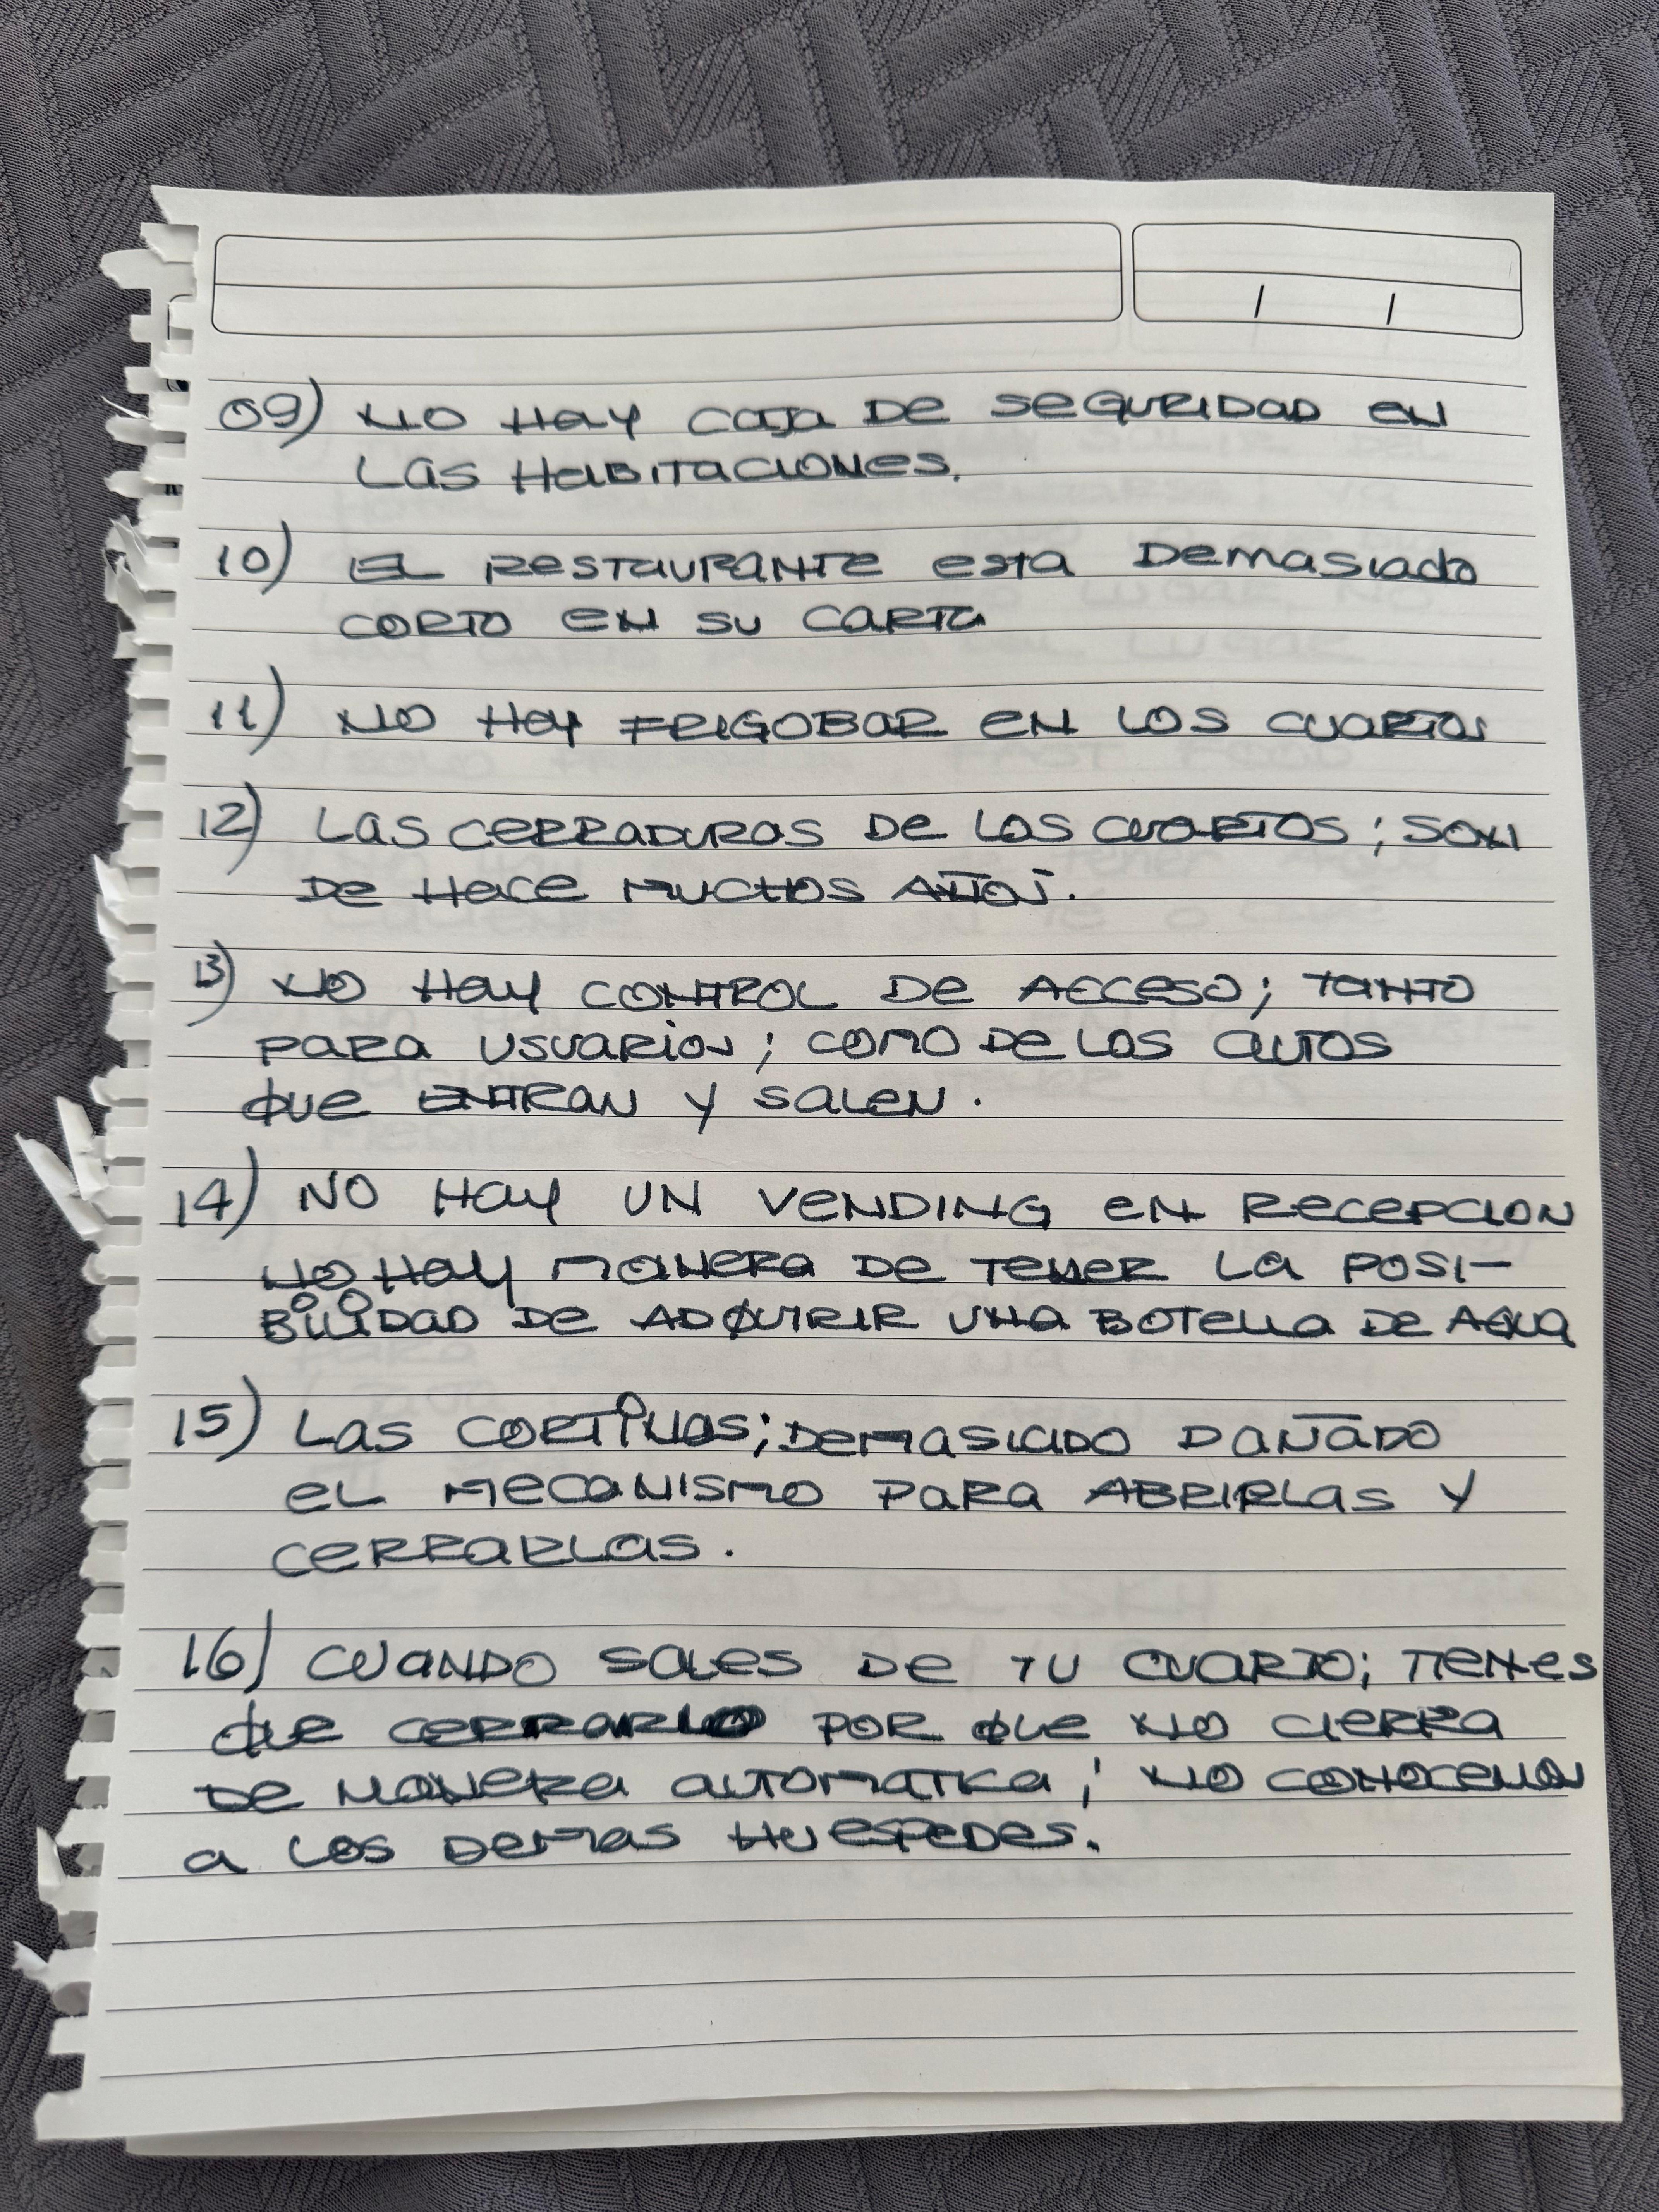 09) NO HAY CAJA DE SEGURIDAD EN
LAS HABITACIONES.
10) EL RESTAURANTE ESTA DEMASIADO
CORTO EN SU CARTA
11) NO HAY FRIGOBAR EN LOS CUARTOS
12) LAS CERRADURAS DE LOS CUARTOS; SON
DE HACE MUCHOS AÑOS.
13) NO HAY CONTROL DE ACCESO; TANTO
PARA USUARIOS; COMO DE LOS AUTOS
QUE ENTRAN Y SALEN.
14) NO HAY UN VENDING EN RECEPCION
NO HAY MANERA DE TENER LA POSI-
BILIDAD DE ADQUIRIR UNA BOTELLA DE AGUA
15) LAS CORTINAS; DEMASIADO DAÑADO
EL MECANISMO PARA ABRIRLAS Y
CERRARLAS.
16) CUANDO SALES DE TU CUARTO; TIENES
QUE CERRARLO POR QUE NO CIERRA
DE MANERA AUTOMATICA; NO CONOCEMOS
A LOS DEMAS HUESPEDES.